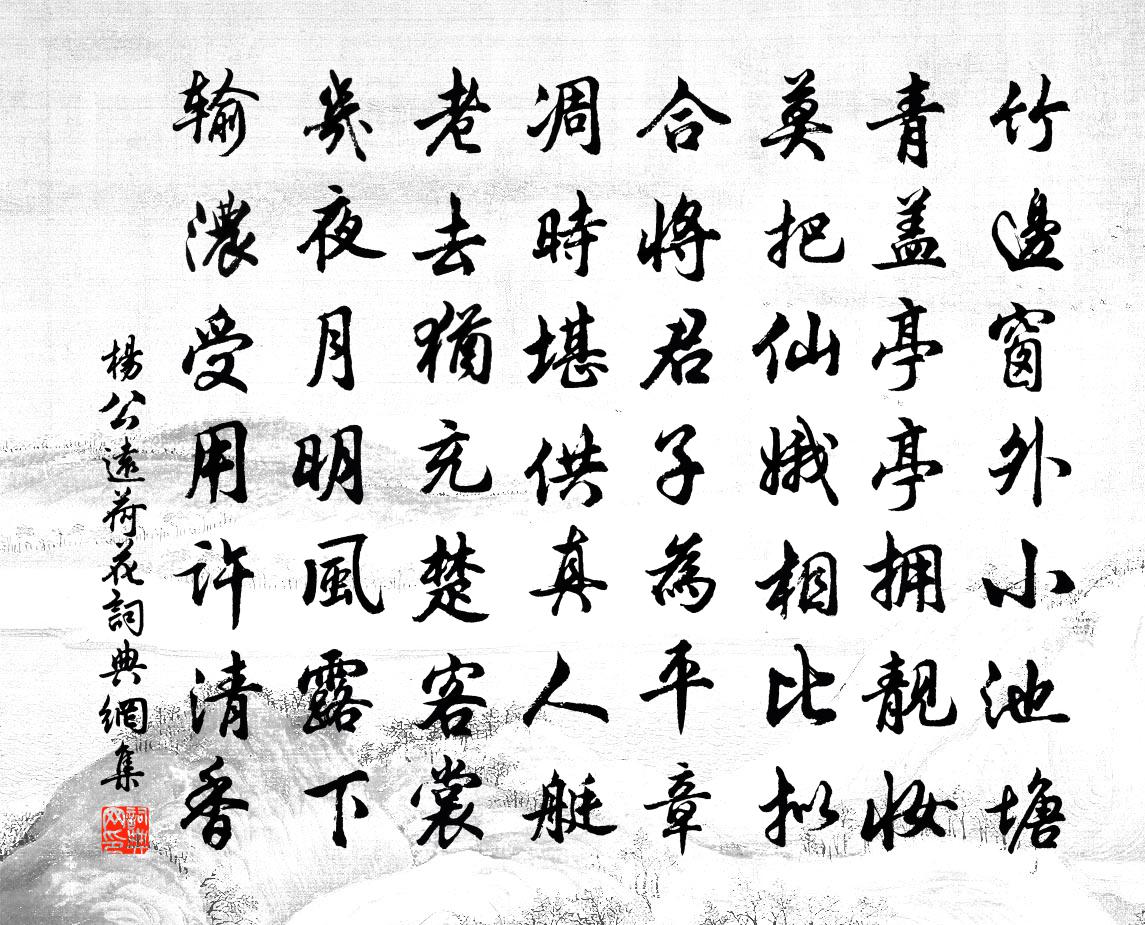 竹邊窗外小池塘
青蓋亭亭拥靚妝
莫把仙娥相比拟
合將君子為平章
凋時堪供真人艇
老去猶充楚客裳
幾夜月明風露下
输濃受用許清香
楊公遠荷花詞典網集